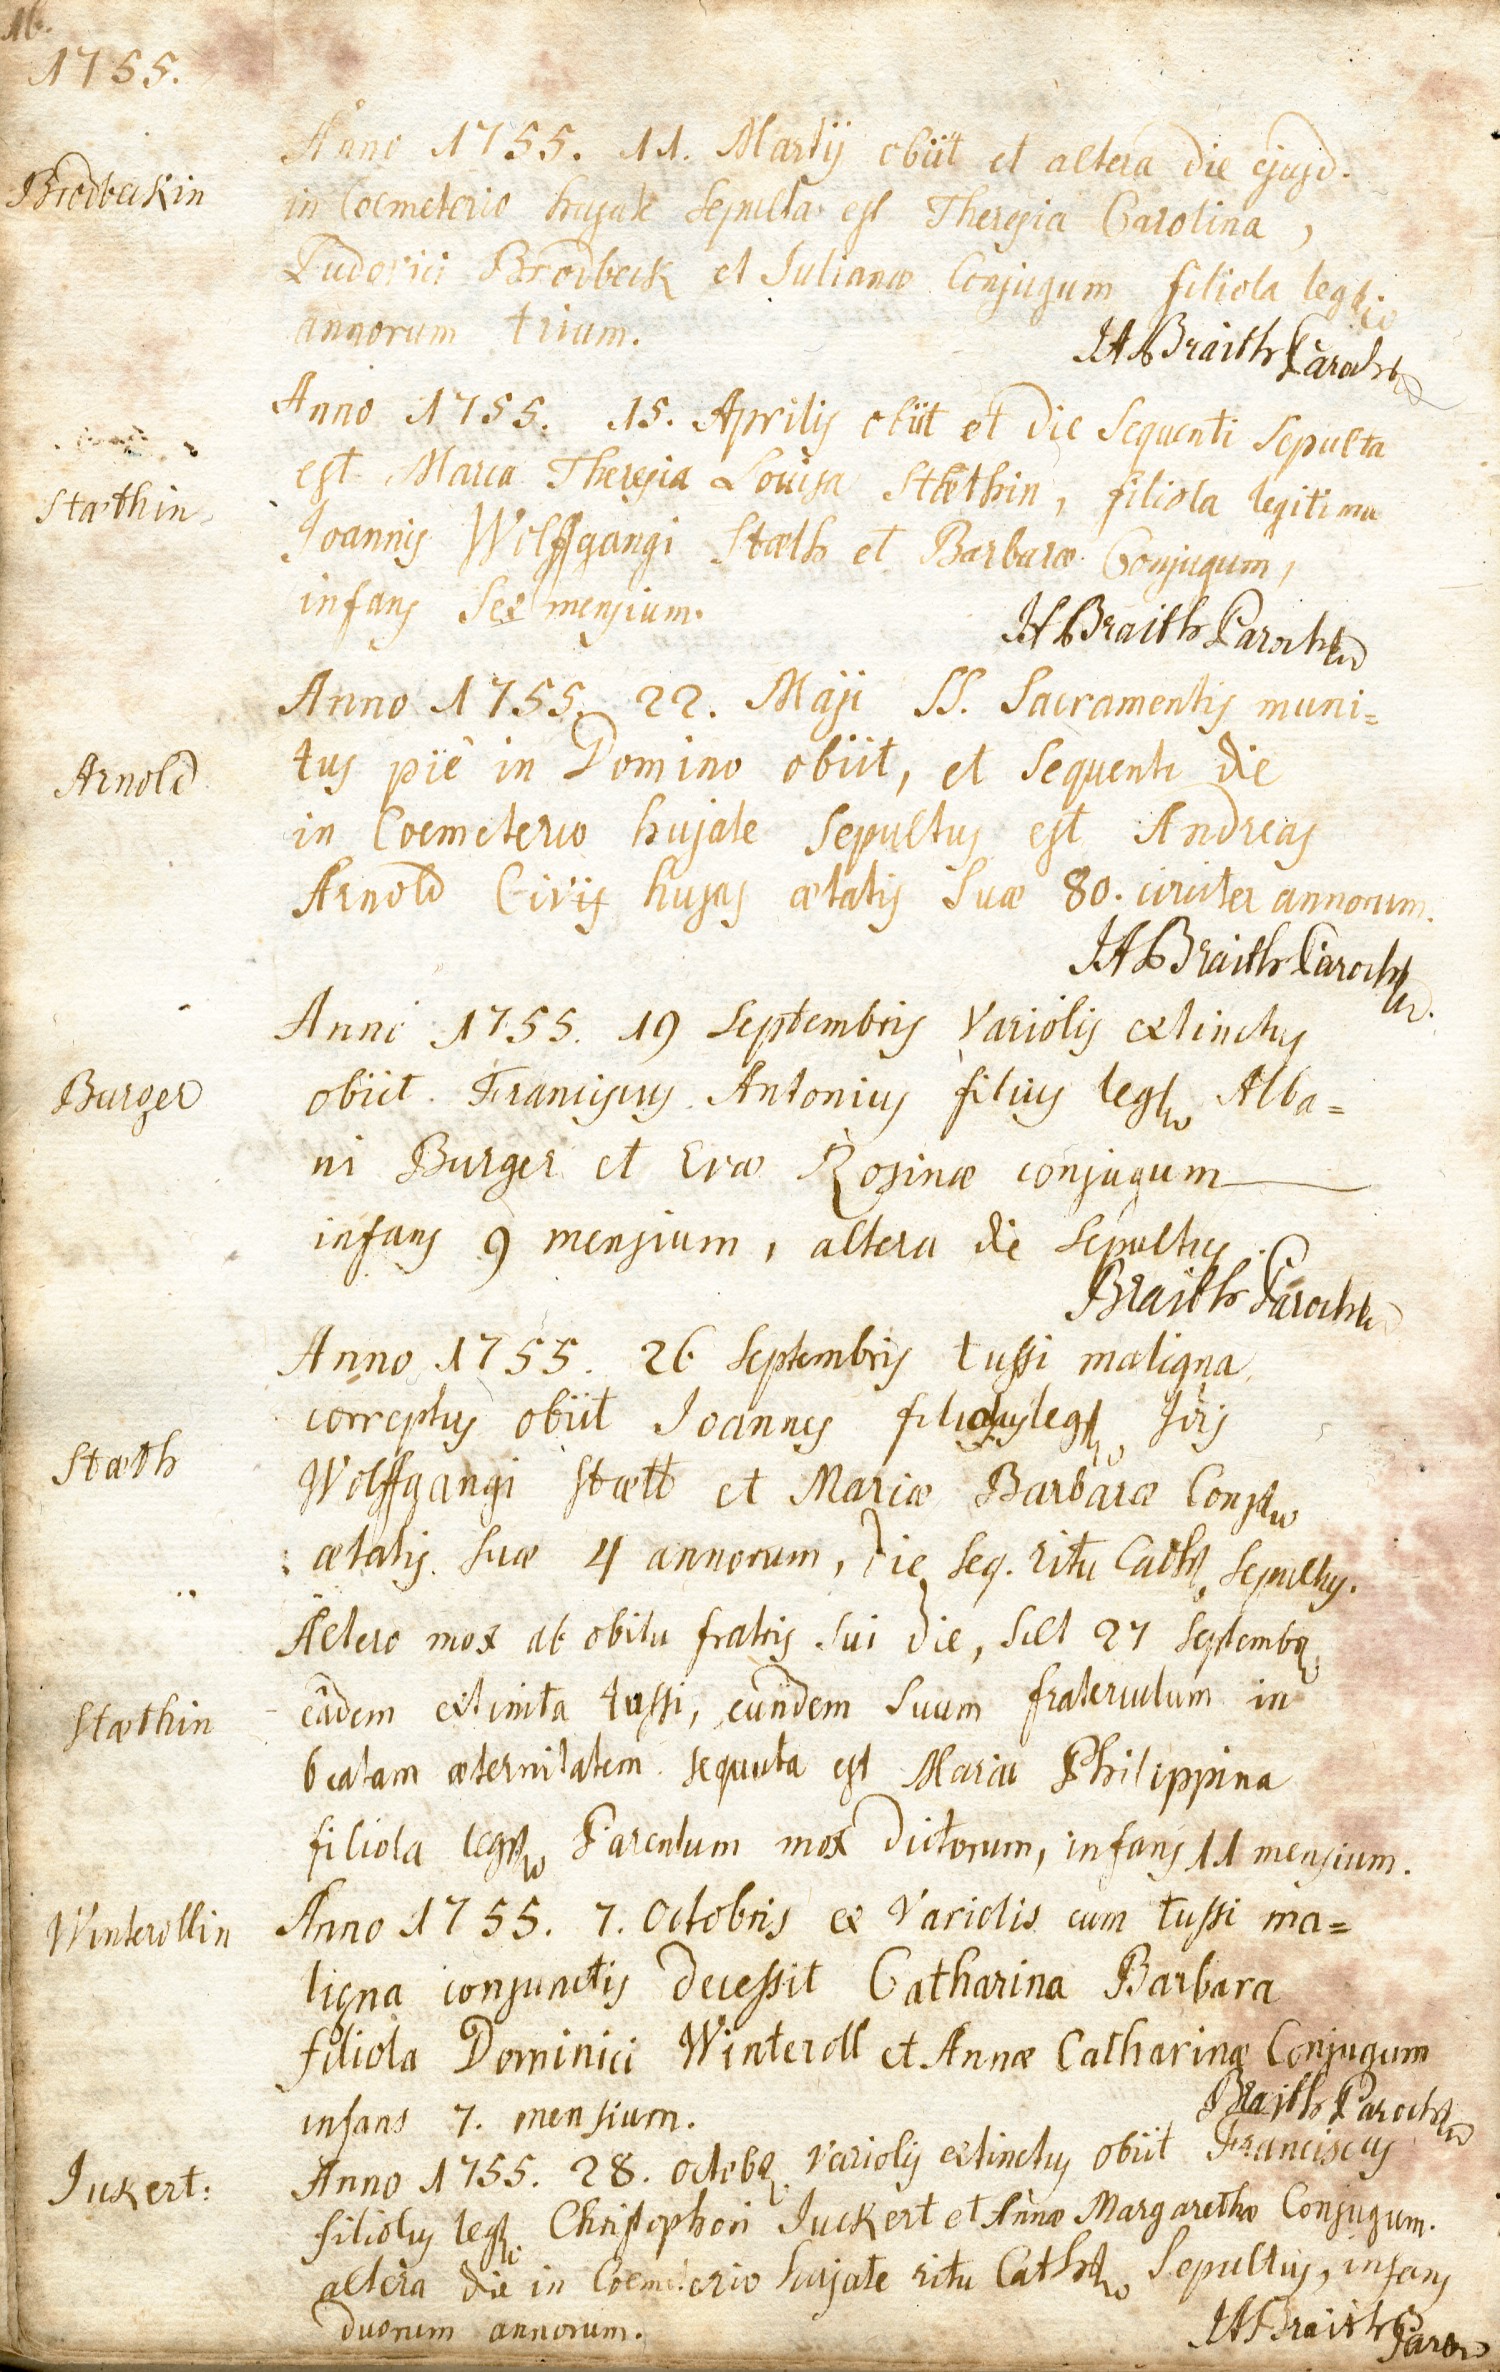 16.
1755.
Brodbeckin
Anno 1755. 11. Martij obiit et altera die ejusd.
in Coemeterio hujate Sepulta est Theresia Carolina,
Ludovici Brodbeck et Julianæ Conjugum filiola leg.
annorum trium.
JABraith Parochus
Stæthin
Anno 1755. 15. Aprilis obiit et die Sequenti Sepulta
est Maria Theresia Louisa Stæthin, filiola legitima
Joannis Wolffgangi Stæth et Barbaræ Conjugum,
infans Sex mensium.
JABraith Parochus
Arnold
Anno 1755. 22. Maji SS. Sacramentis muni=
tus piè in Domino obiit, et Sequenti die
in Coemeterio hujate Sepultus est Andreas
Arnold Civis hujas ætatis Suæ 80. circiter annorum.
JABraith Parochus
Burger
Anno 1755. 19 Septembris Variolis extinctus
obiit Franciscus Antonius filius leg. Alba=
ni Burger et Evæ Rosinæ conjugum
infans 9 mensium, altera die Sepultus.
Braith Parochus
Stæth
Anno 1755. 26 Septembris tussi maligna
correptus obiit Joannes filiolus leg. Jois
Wolffgangi Stætt et Mariæ Barbaræ Conj.
ætatis Suæ 4 annorum, die Seq. ritu Cath. Sepultus.
Stæthin
Altero mox ab obitu fratris Sui die, Scil 27 Septemb.
eâdem extincta tussi, eundem Suum fraterculum in
beatam æternitatem sequuta est Maria Philippina
filiola leg. Parentum mox dictorum, infans 11 mensium.
Winterollin
Anno 1755. 7. Octobris ex Variolis cum tussi ma=
ligna conjunctis decessit Catharina Barbara
filiola Dominici Winteroll et Annæ Catharinæ Conjugum
infans 7. mensium.
Braith Parochus
Juckert:
Anno 1755. 28. octob. variolis extinctus obiit Franciscus
filiolus leg. Christophori Juckert et Annæ Margarethæ Conjugum.
altera die in Coemeterio hujate ritu Cath. Sepultus, infans
duorum annorum.
JABraith Paro